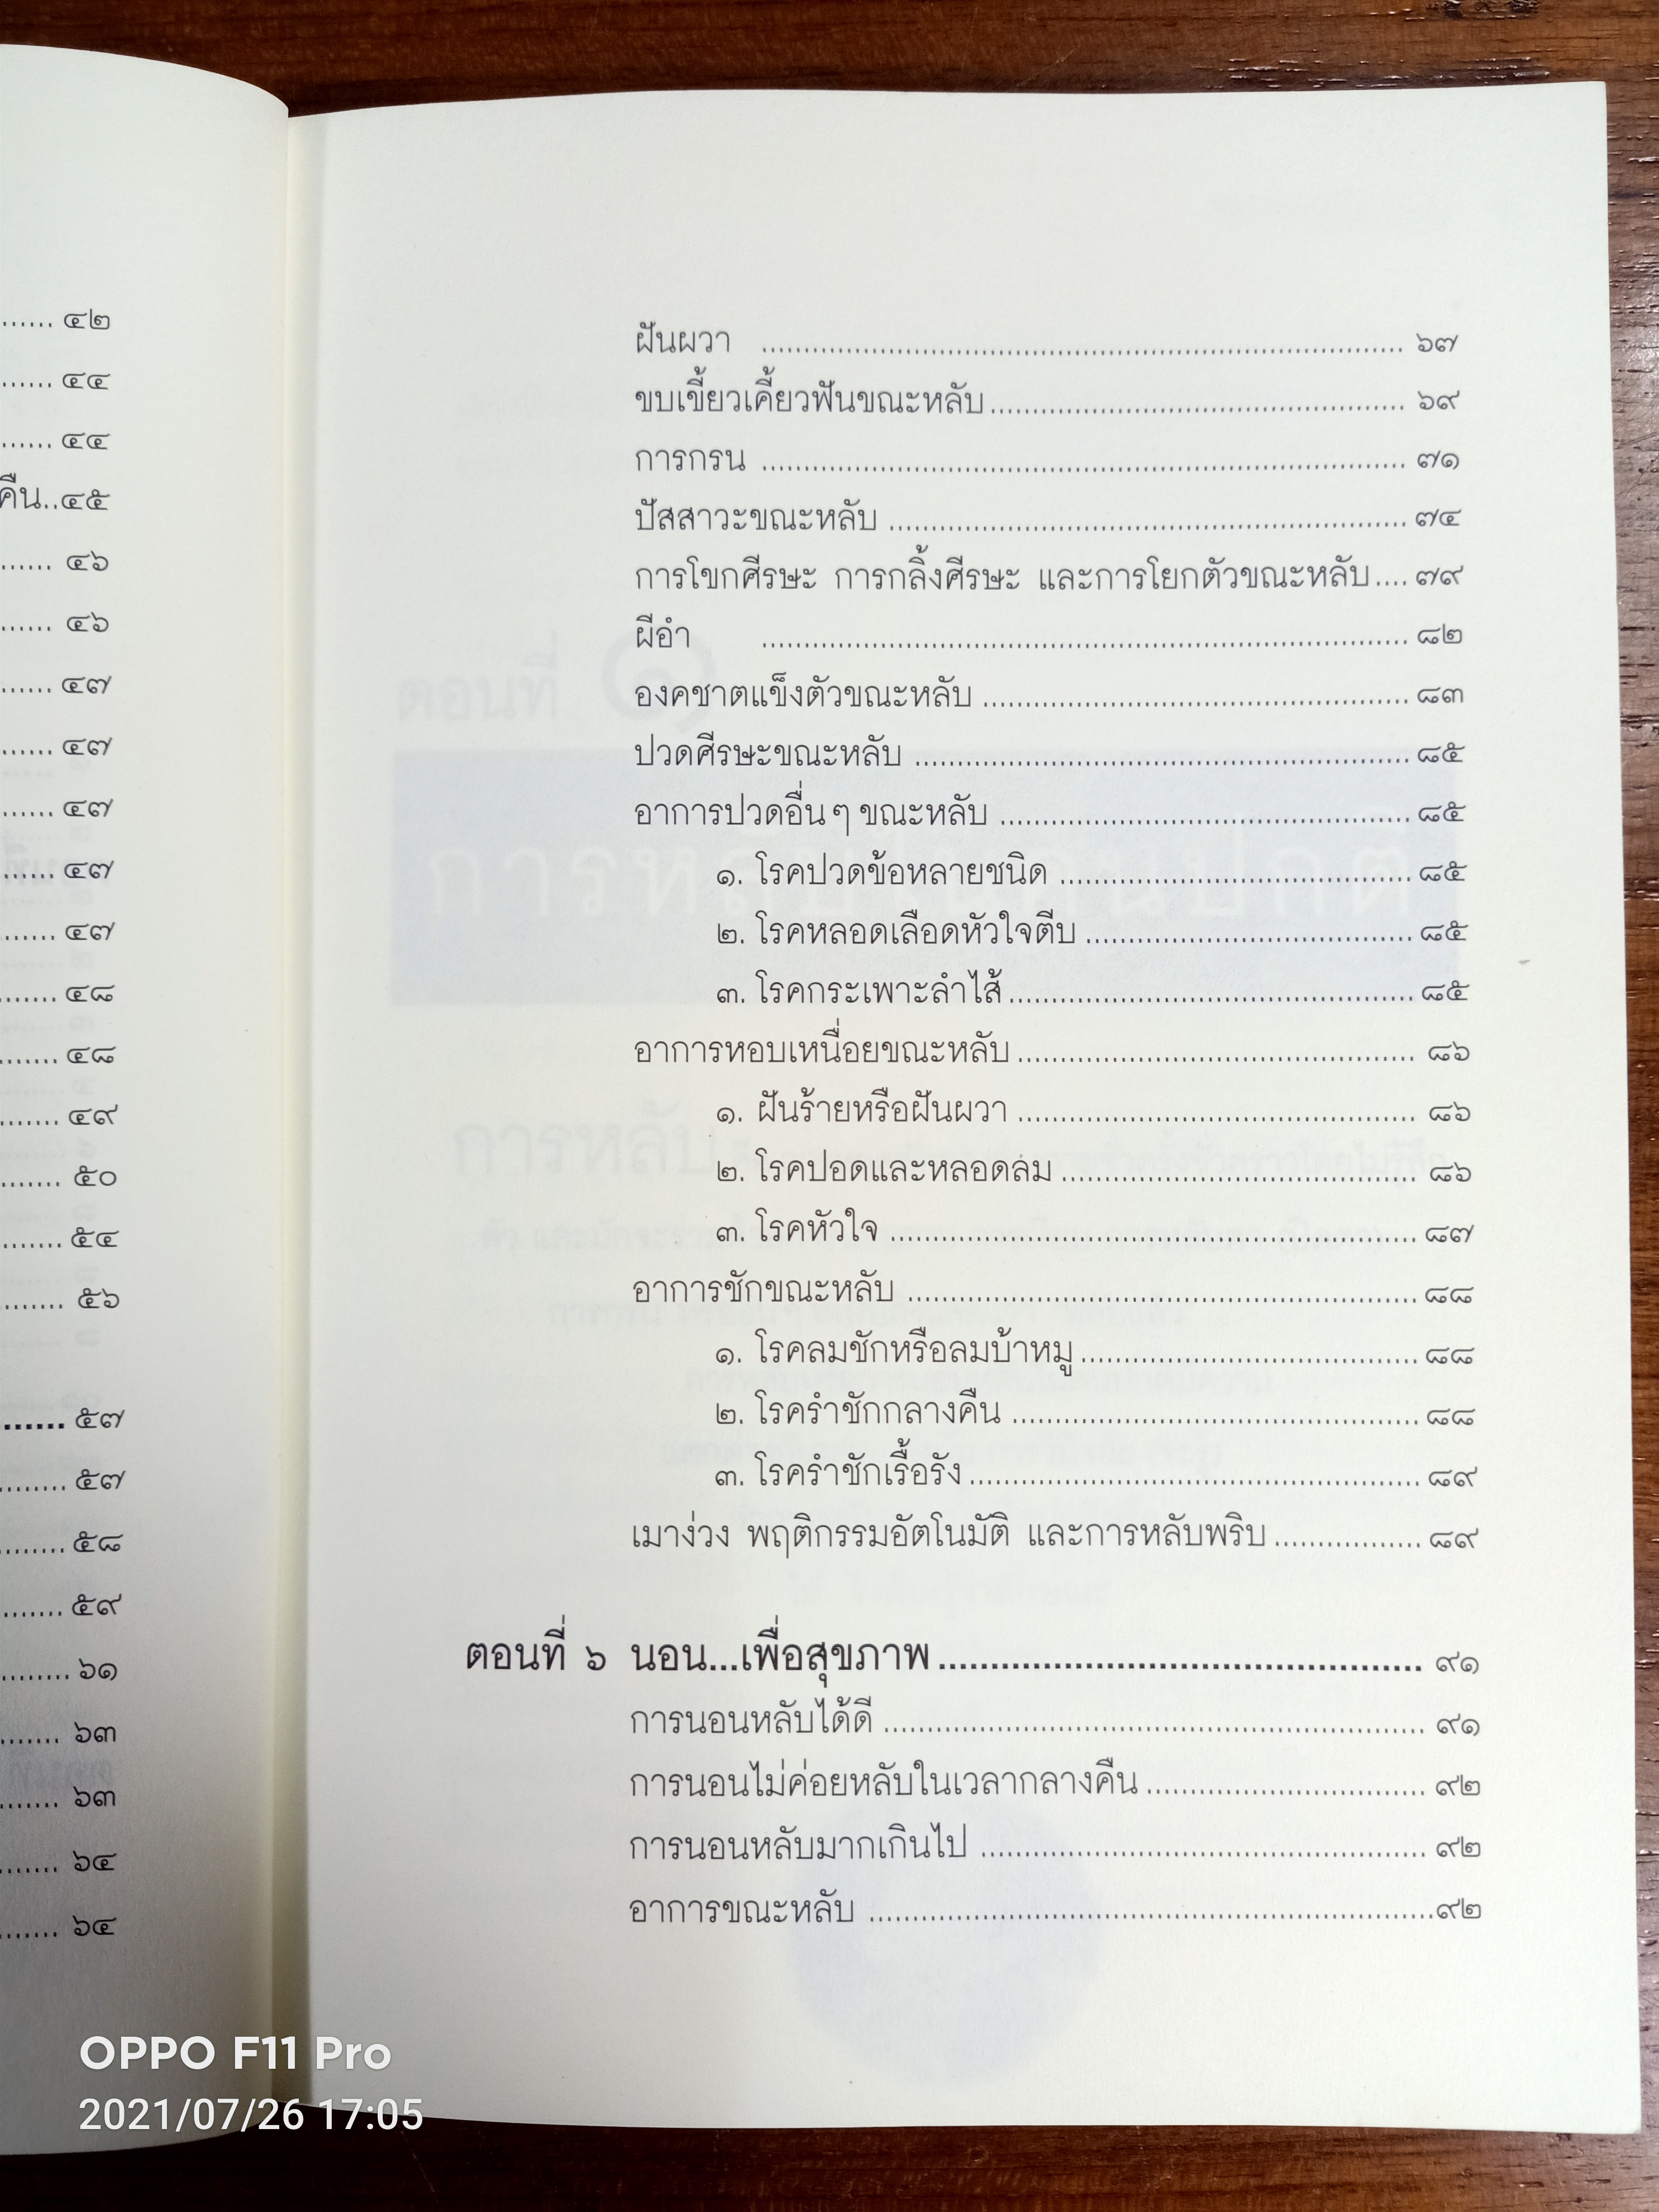 ...... ๔๒
...... ๔๔
...... ๔๔
คืน..๔๕
...... ๔๖
...... ๔๖
...... ๔๗
...... ๔๗
...... ๔๗
...... ๔๗
...... ๔๗
....... ๔๘
....... ๔๘
....... ๔๙
....... ๕๐
....... ๕๔
........ ๕๖
....... ๕๗
........ ๕๗
........ ๕๘
....... ๕๙
........ ๖๑
....... ๖๓
....... ๖๓
....... ๖๔
....... ๖๔
ฝันผวา .......... ๖๗
ขบเขี้ยวเคี้ยวฟันขณะหลับ.......... ๖๙
การกรน .......... ๗๑
ปัสสาวะขณะหลับ .......... ๗๔
การโขกศีรษะ การกลิ้งศีรษะ และการโยกตัวขณะหลับ.... ๗๙
ผีอำ .......... ๘๒
องคชาตแข็งตัวขณะหลับ .......... ๘๓
ปวดศีรษะขณะหลับ .......... ๘๕
อาการปวดอื่นๆ ขณะหลับ .......... ๘๕
๑. โรคปวดข้อหลายชนิด .......... ๘๕
๒. โรคหลอดเลือดหัวใจตีบ .......... ๘๕
๓. โรคกระเพาะลำไส้.......... ๘๕
อาการหอบเหนื่อยขณะหลับ .......... ๘๖
๑. ฝันร้ายหรือฝันผวา .......... ๘๖
๒. โรคปอดและหลอดลม .......... ๘๖
๓. โรคหัวใจ .......... ๘๗
อาการชักขณะหลับ .......... ๘๘
๑. โรคลมชักหรือลมบ้าหมู.......... ๘๘
๒. โรครำชักกลางคืน .......... ๘๘
๓. โรครำชักเรื้อรัง.......... ๘๙
เมาง่วง พฤติกรรมอัตโนมัติ และการหลับพริบ .......... ๘๙
ตอนที่ ๖ นอน...เพื่อสุขภาพ.......... ๙๑
การนอนหลับได้ดี .......... ๙๑
การนอนไม่ค่อยหลับในเวลากลางคืน .......... ๙๒
การนอนหลับมากเกินไป .......... ๙๒
อาการขณะหลับ .......... ๙๒
OPPO F11 Pro
2021/07/26 17:05